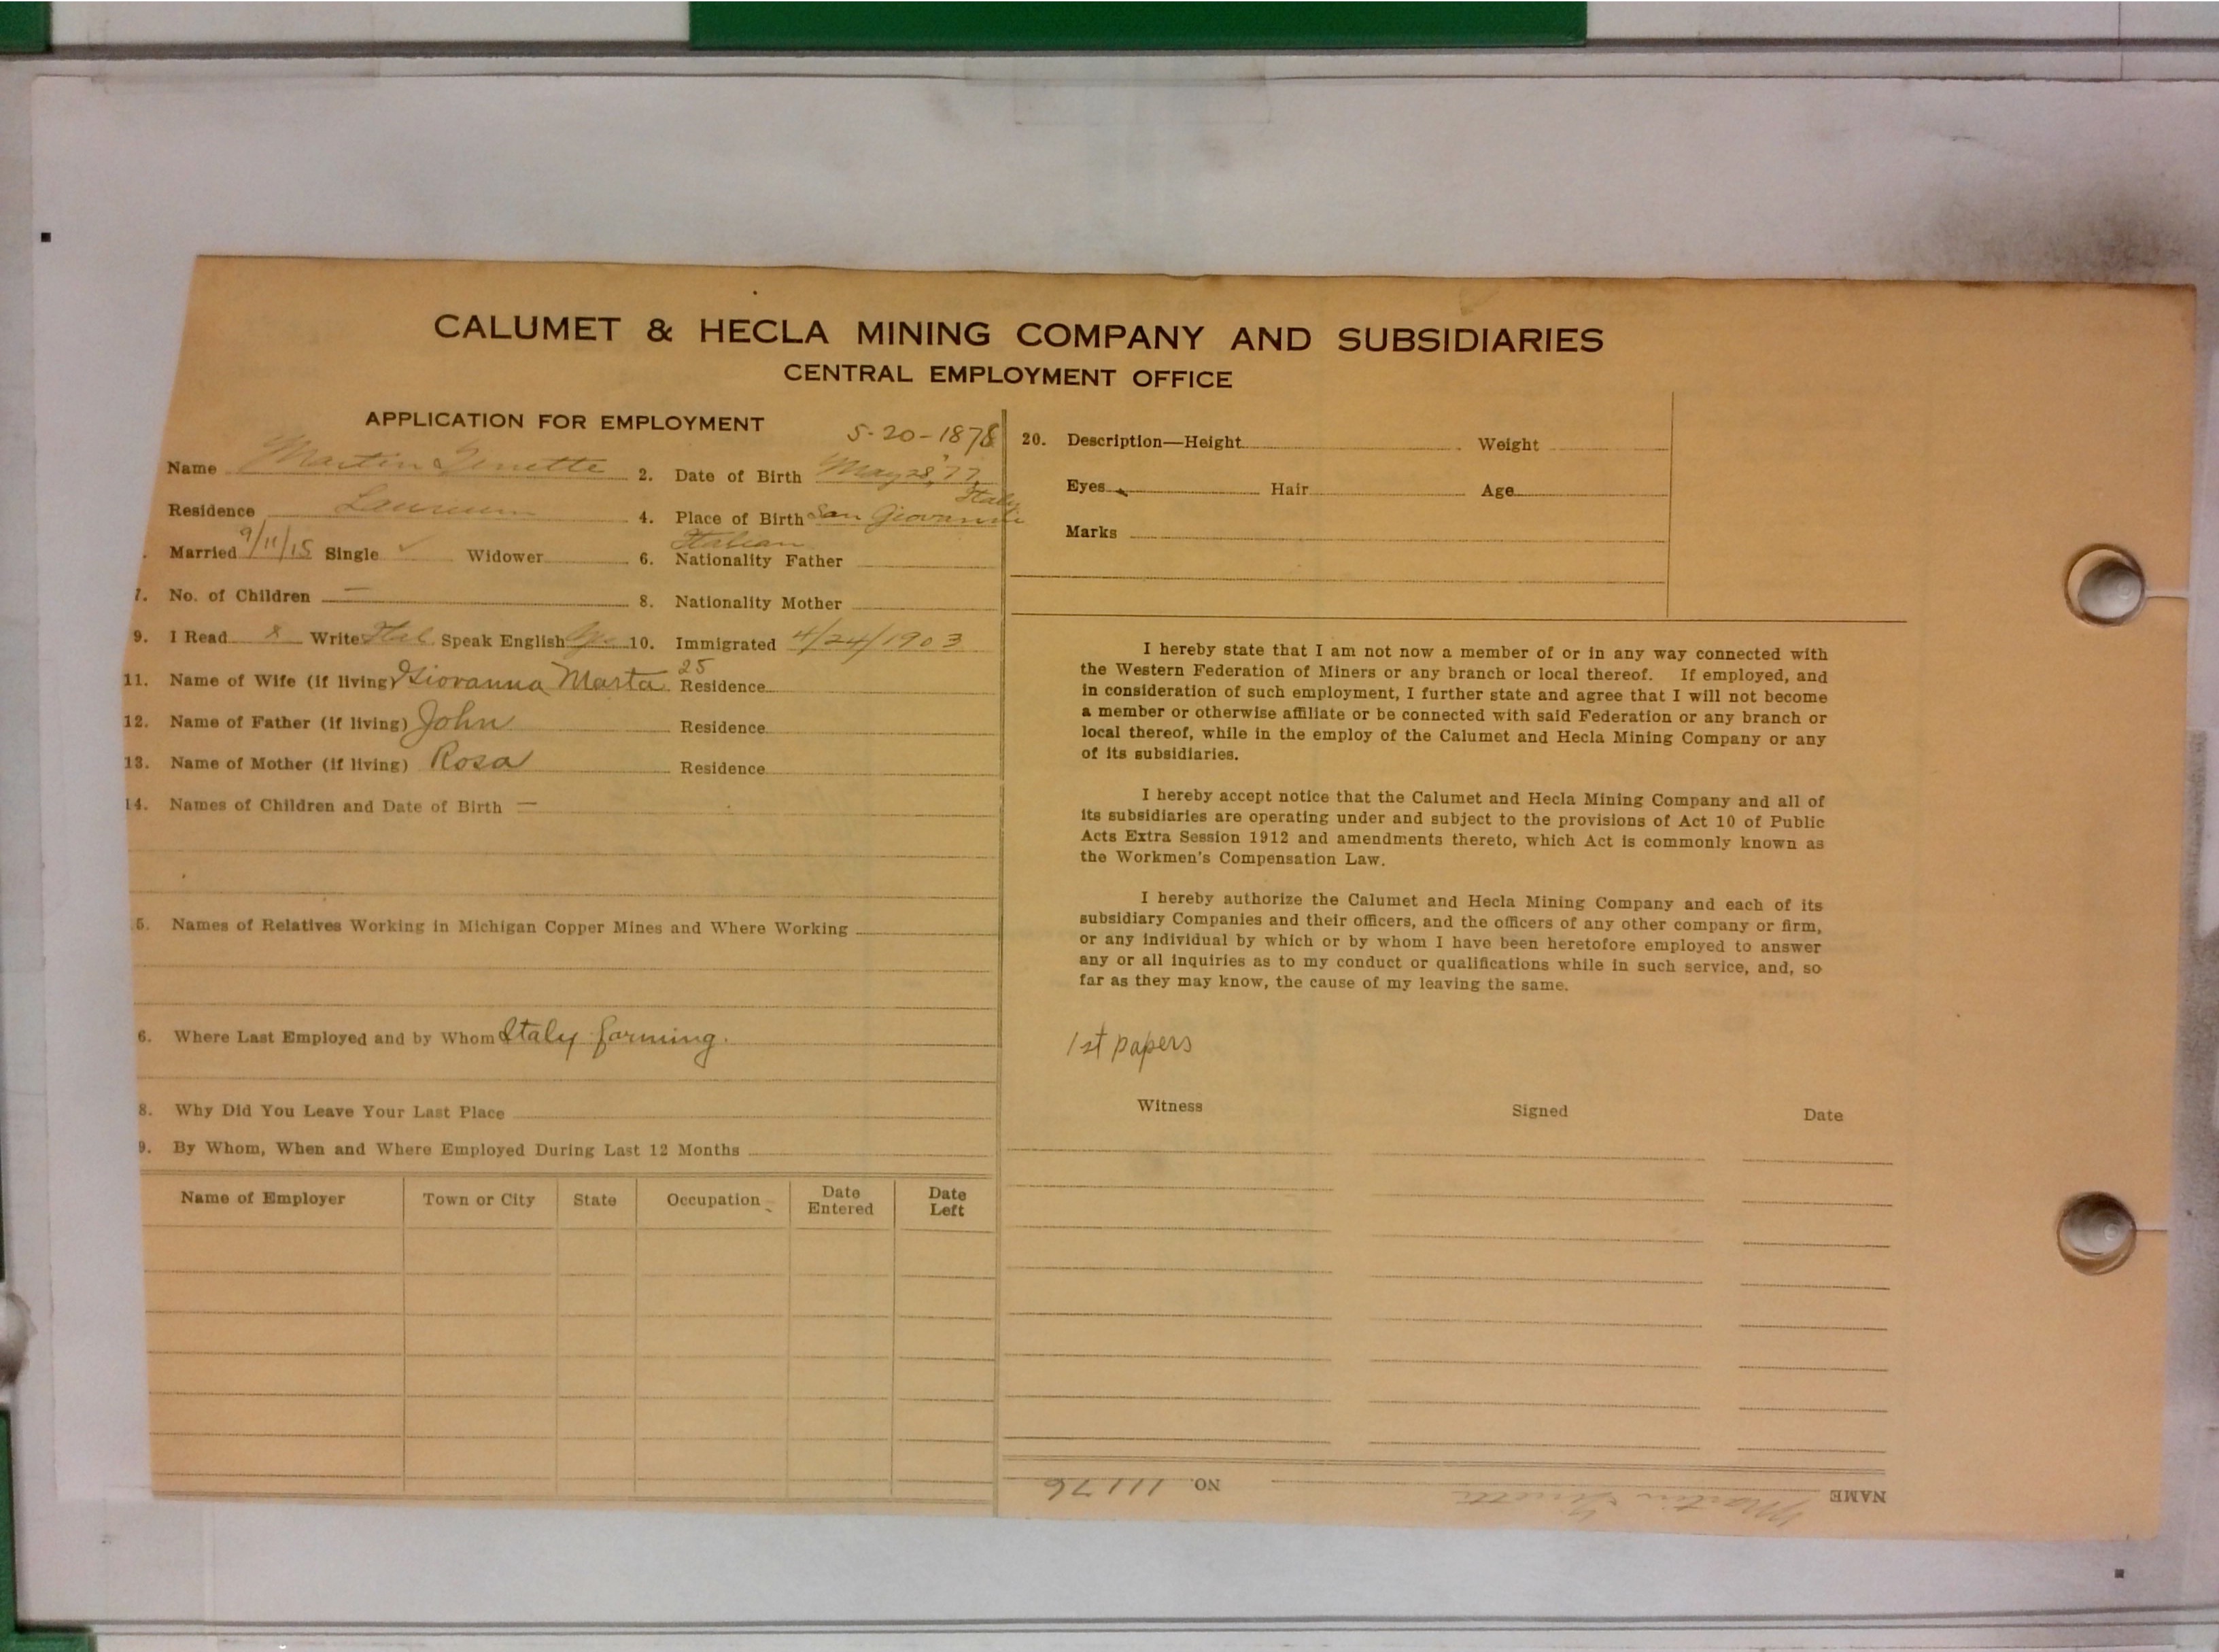 CALUMET & HECLA MINING COMPANY AND SUBSIDIARIES
CENTRAL EMPLOYMENT OFFICE
APPLICATION FOR EMPLOYMENT
5-20-1878
Name Martin 2. Date of Birth May 28, 77,
Italy
Residence Laurium 4. Place of Birth San Giovanni
Married 9/11/15 Single ✓ Widower 6. Nationality Father Italian
7. No. of Children — 8. Nationality Mother
9. I Read & Write Ital Speak English 10. Immigrated 4/24/1903
11. Name of Wife (if living) Giovanna Marta 25 Residence
12. Name of Father (if living) John Residence
13. Name of Mother (if living) Rosa Residence
14. Names of Children and Date of Birth —
5. Names of Relatives Working in Michigan Copper Mines and Where Working
6. Where Last Employed and by Whom Italy farming.
8. Why Did You Leave Your Last Place
9. By Whom, When and Where Employed During Last 12 Months
Name of Employer Town or City State Occupation Date Entered Date Left
20. Description—Height Weight
Eyes Hair Age
Marks
I hereby state that I am not now a member of or in any way connected with
the Western Federation of Miners or any branch or local thereof. If employed, and
in consideration of such employment, I further state and agree that I will not become
a member or otherwise affiliate or be connected with said Federation or any branch or
local thereof, while in the employ of the Calumet and Hecla Mining Company or any
of its subsidiaries.
I hereby accept notice that the Calumet and Hecla Mining Company and all of
its subsidiaries are operating under and subject to the provisions of Act 10 of Public
Acts Extra Session 1912 and amendments thereto, which Act is commonly known as
the Workmen's Compensation Law.
I hereby authorize the Calumet and Hecla Mining Company and each of its
subsidiary Companies and their officers, and the officers of any other company or firm,
or any individual by which or by whom I have been heretofore employed to answer
any or all inquiries as to my conduct or qualifications while in such service, and, so
far as they may know, the cause of my leaving the same.
1st papers
Witness Signed Date
NAME Martin NO. 11176